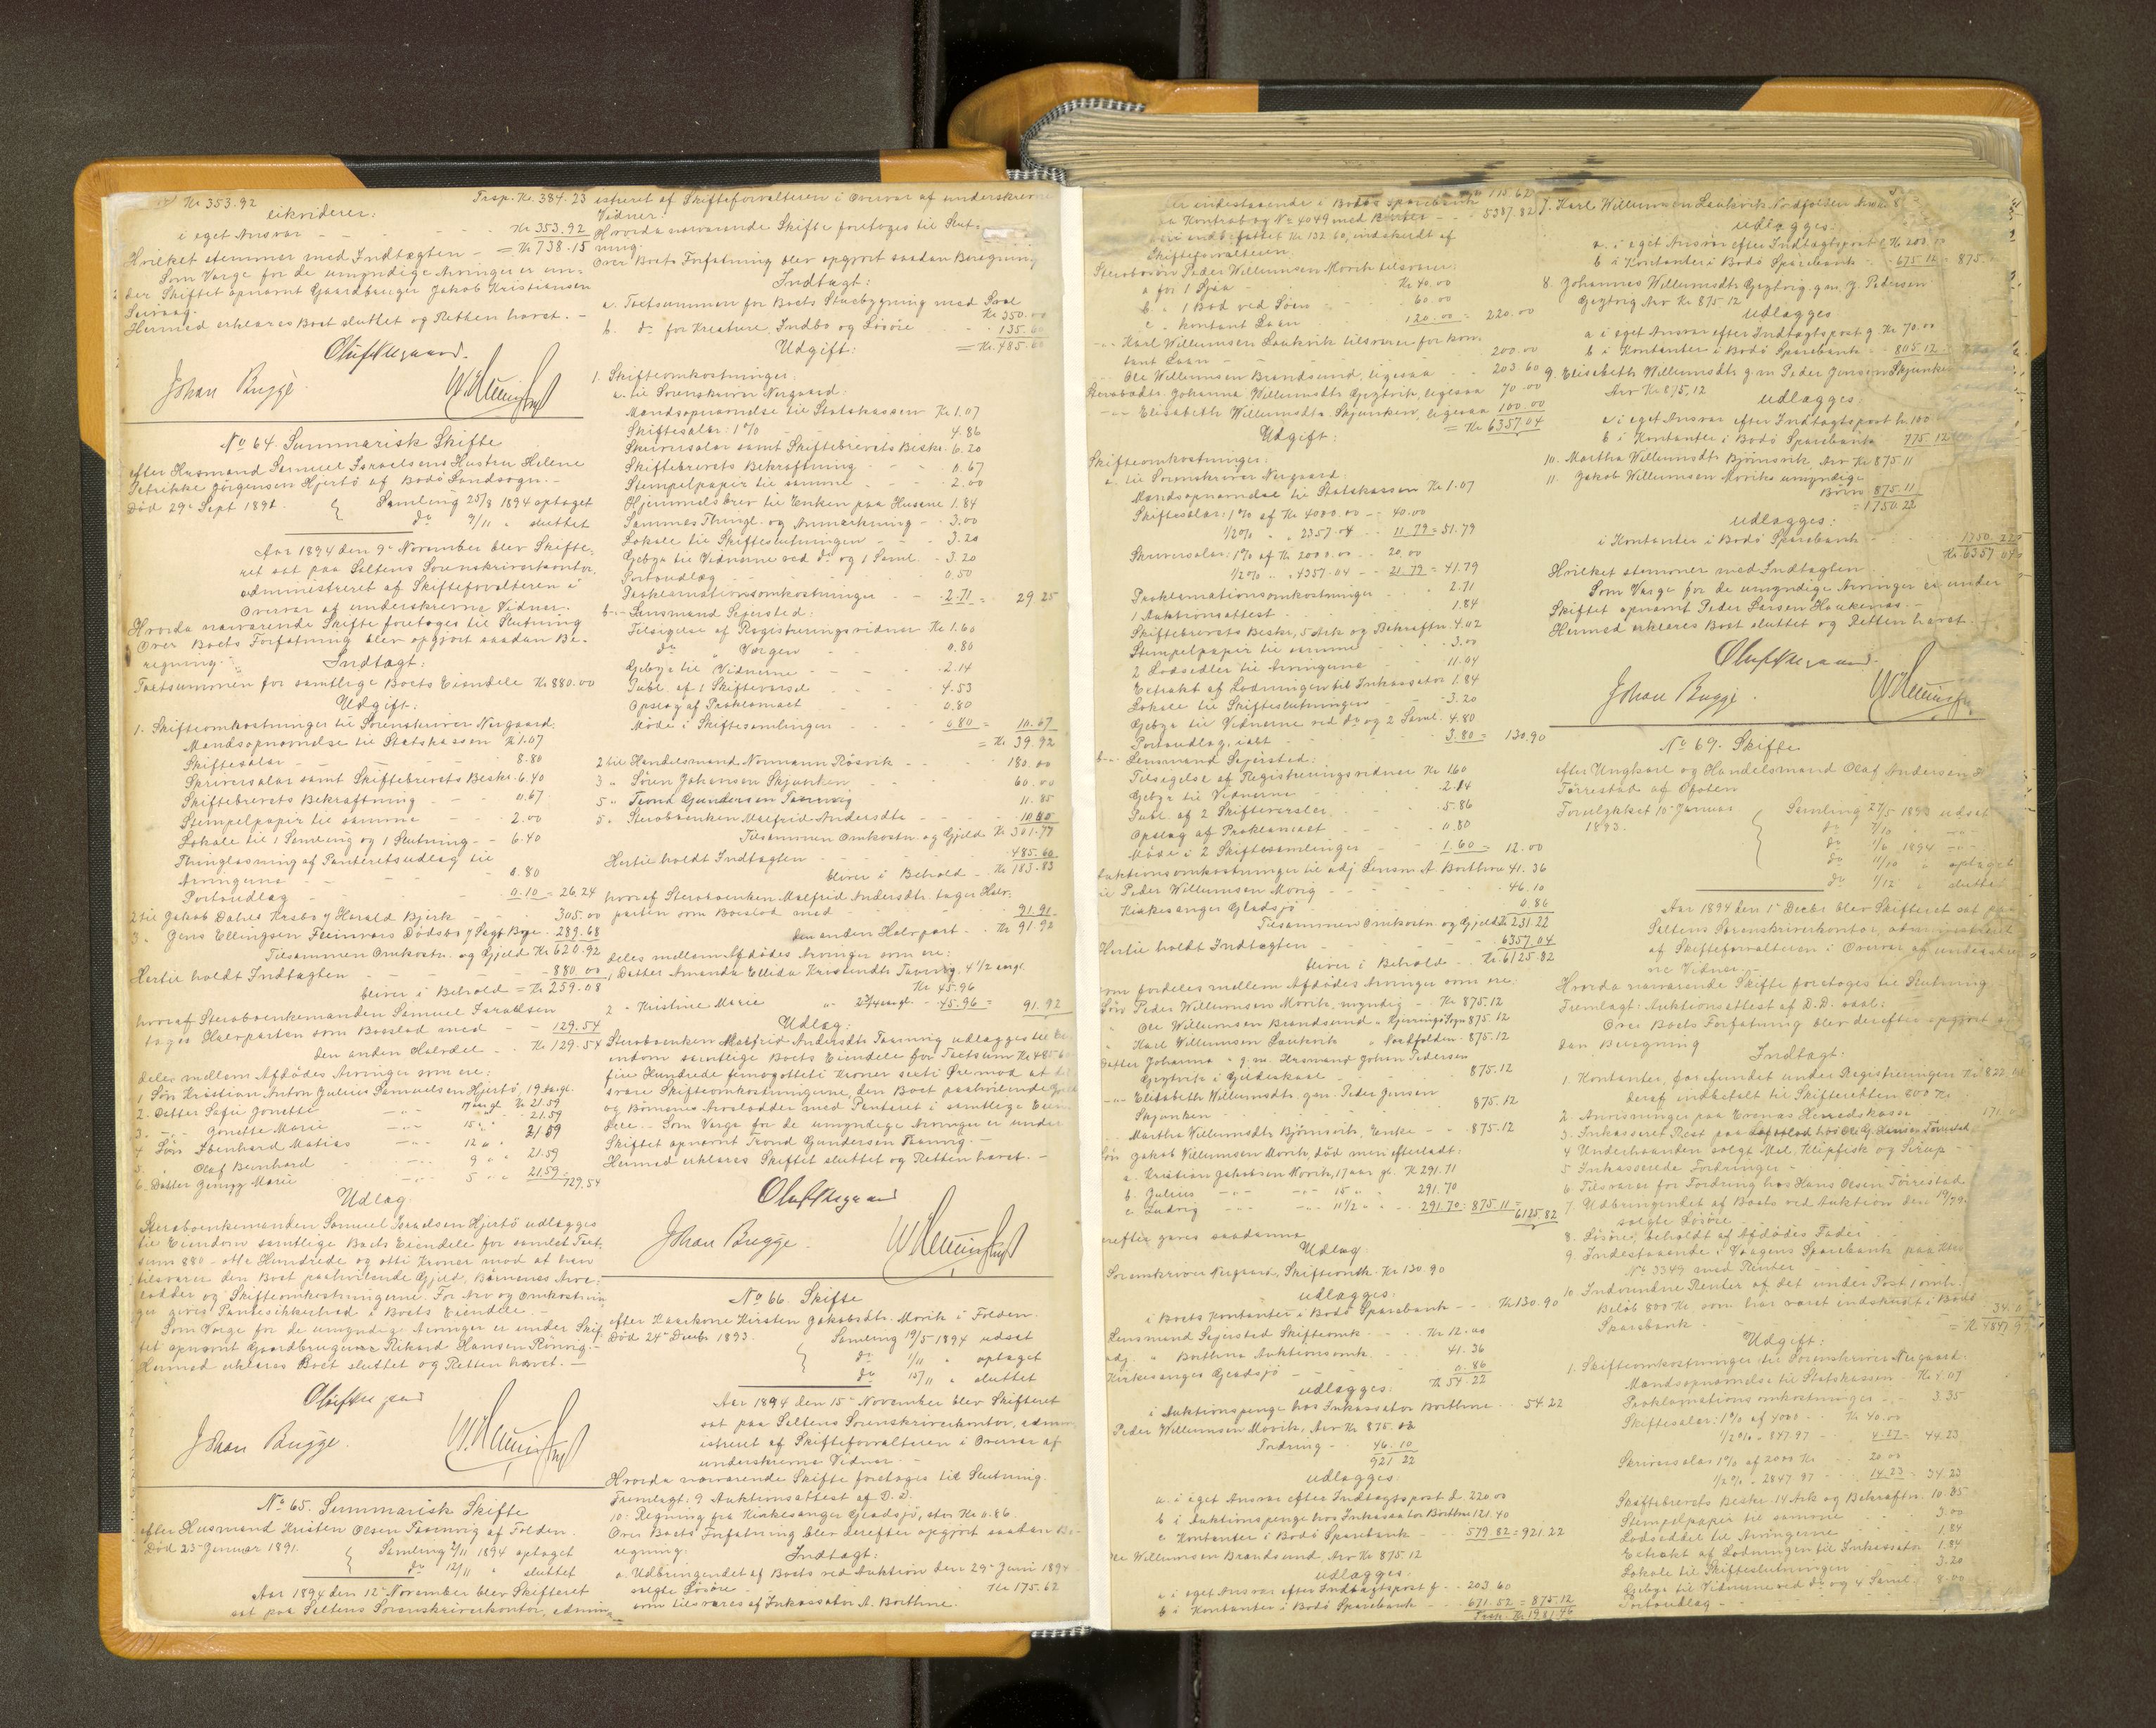 Kr 353.92 Trsp. Kr. 384.23
likviderer:
i eget Ansvar - - - Kr 353.92
Hvilket stemmer med Indtægten - = Kr 738.15
Som Værge for de umyndige Arvinger er un-
der Skiftet opnævnt Gaardbruger Jakob Kristiansen
Hermed erklæres Boet sluttet og Retten hævet. -
Oluf Nergaard.
Johan Bugge
No 64. Summarisk Skifte
efter Husmand Samuel Israelsens Hustru Helene
Petrikke Jörgensen Hjertö af Bodö Landsogn. -
Död 29 Sept 1891. { Samling 25/8 1894 optaget
do 9/11 " sluttet
Aar 1894 den 9 November blev Skifte-
ret sat paa Saltens Sorenskriverkontor,
administreret af Skifteforvalteren i
Overvær af underskrevne Vidner. -
Hvorda nærværende Skifte foretoges til Slutning
Over Boets Forfatning blev opgjort saadan Be-
regning. -
Indtægt:
Taxtsummen for samtlige Boets Eiendele Kr 880.00
Udgift:
1. Skifteomkostninger til Sorenskriver Nergaard:
Mandsopnævnelse til Statskassen Kr 1.07
Skiftesalær - - 8.80
Skriversalær samt Skiftebrevets Beskr. 6.40
Skiftebrevets Bekræftning - - 0.67
Stempelpapir til samme - - 2.00
Lokale til 1 Samling og 1 Slutning - - 6.40
Thinglæsning af Panteretsudlæg til
Arvingerne - - 0.80
Portoudlæg - - 0.10 = 26.24
2 til Jakob Dahls Krsbo / Harald Bjerk - - 305.00
3 " Jens Ellingsen Fleinværs Dödsbo / Sagf. Bye - 289.68
Tilsammen Omkostn. og Gjeld Kr 620.92
Hertil holdt Indtægten - - 880.00
bliver i Behold = Kr 259.08
hvoraf Sterboenkemanden Samuel Israelsen
tager Halvparten som Boeslod med - - 129.54
den anden Halvdel - - Kr 129.54
deles mellem Afdödes Arvinger som ere:
1. Sön Kristian Anton Julius Samuelsen Hjertö, 19 Aar gl.
2. Datter Sofie Jonette - " - 17 aar gl. Kr 21.59
3. - " - Jonette Marie - " - 15 " " 21.59
4 Sön Ebenhard Matias - " - 12 " " 21.59
5. Olaf Bernhard - " - 9 " " 21.59
6. Datter Jenny Marie - " - 5 " " 21.59 = 129.54
Udlæg
Sterboenkemanden Samuel Israelsen Hjertö udlægges
til Eiendom samtlige Boets Eiendele for samlet Taxt-
sum 880 - otte Hundrede og otti Kroner mod at han
tilsvarer den Boet paahvilende Gjeld, Börnenes Arve-
lodder og Skifteomkostningerne. For Arv og Omkostnin-
ger gives Pantesikkerhed i Boets Eiendele. -
Som Værge for de umyndige Arvinger er under Skif-
tet opnævnt Gaardbruger Rikard Hansen Rönvig. -
Hermed erklæres Boet sluttet og Retten hævet. -
Oluf Nergaard
Johan Bugge.
No 65. Summarisk Skifte
efter Husmand Kristen Olsen Taarnvig af Folden.
Död 23 Januar 1891. { Samling 2/11 1894 optaget
do 12/11 " sluttet
Aar 1894 den 12 November blev Skifteret
sat paa Saltens Sorenskriverkontor, admin-
istreret af Skifteforvalteren i Overvær af underskrevne
Vidner.
Hvorda nærværende Skifte foretoges til Slut-
ning.
Over Boets Forfatning blev opgjort saadan Beregning
Indtægt:
a. Taxtsummen for Boets Stuebygning med Sval
Kr 350.00
b. do for Kreature, Indbo og Lösöre - 135.60
= Kr. 485.60
Udgift:
1. Skifteomkostninger:
a. til Sorenskriver Nergaard:
Mandsopnævnelse til Statskassen Kr 1.07
Skiftesalær: 1% - - 4.86
Skriversalær samt Skiftebrevets Beskr. 6.20
Skiftebrevets Bekræftning - - 0.67
Stempelpapir til samme - - 2.00
Hjemmelsbrev til Enken paa Husene 1.84
Sammes Thingl. og Anmærkning - - 3.00
Lokale til Skifteslutningen - - 3.20
Gebyr til Vidnerne ved do og 1 Saml. - 3.20
Portoudlæg - - 0.50
Proklamationsomkostninger - - 2.71 = 29.25
b - - Lensmand Sejersted:
Tilsigelse af Registreringsvidner Kr 1.60
do " Værgen - 0.80
Gebyr til Vidnerne - - 2.14
Publ. af 1 Skiftevarsel - - 4.53
Opslag af Proklamaet - - 0.80
Möde i Skiftesamlingen - - 0.80 = 10.67
= Kr. 39.92
2 til Handelsmand Normann Rösvik - - 180.00
3 " Sören Johansen Skjunken - - 60.00
5 " Trond Gundersen Taarnvig 11.85
5 " Sterboenken Malfrid Andersdtr - - 10.00
Tilsammen Omkostn. og Gjeld Kr 301.77
Hertil holdt Indtægten - - 485.60
bliver i Behold - Kr 183.83
hvoraf Sterboenken Malfrid Andersdtr. tager Halv-
parten som Boeslod med - - 91.91
den anden Halvpart - - Kr 91.92
deles mellem Afdödes Arvinger som ere:
1 Datter Amanda Ellida Kristendtr Taarnvig, 4 1/2 aar gl.
Kr 45.96
2 - Kristine Marie " 2 3/4 aar gl. - 45.96 = 91.92
Udlæg:
Sterboenken Malfrid Andersdtr Taarnvig udlægges til Ei-
endom samtlige Boets Eiendele for Taxtsum Kr 485.60
fire Hundrede femogotteti Kroner sexti Öre mod at
svare Skifteomkostningerne, den Boet paahvilende Gjeld
og Börnenes Arvelodder med Panteret i samtlige Eien-
dele. - Som Værge for de umyndige Arvinger er under
Skiftet opnævnt Trond Gundersen Taarnvig. -
Hermed erklæres Skiftet sluttet og Retten hævet. -
Oluf Nergaard
Johan Bugge.
No 66. Skifte
efter Huskone Kirsten Jakobsdtr. Morik i Folden.
Död 24 Decbr 1893. { Samling 19/5 1894 udsat
do 1/11 " optaget
do 15/11 " sluttet
Aar 1894 den 15 November blev Skifteret
sat paa Saltens Sorenskriverkontor, admin-
istreret af Skifteforvalteren i Overvær af
underskrevne Vidner. -
Hvorda nærværende Skifte foretoges til Slutning.
Fremlagt: 9 Auktionsattest af D. D.
10: Regning fra Kirkesanger Gladsjö, stor Kr 0.86.
Over Boets Forfatning blev derefter opgjort saadan Be-
regning:
Indtægt:
a. Udbringendet af Boets ved Auktion den 29 Juni 1894
solgte Lösöre - - Kr 175.62
som tilsvares af Inkassator A. Borthne.
175.62
indestaaende i Bodö Sparebank
Kontrabog No 4049 med Renter - - 5387.82
132.60, indskudt af
Skifteforvalteren.
Sterbosön Peder Willumsen Morik tilsvarer:
a for 1 Spaa - Kr 40.00
b " 1 Bod ved Söen - 60.00
c " kontant Laan - 120.00 = 220.00
- - Karl Willumsen Laukvik tilsvarer for kon-
tant Laan - - 200.00
Ole Willumsen Brændsund, ligesaa - - 203.60
Sterbodtr. Johanna Willumsdtr Grytvik, ligesaa 70.00
- - Elisabeth Willumsdtr. Skjunken, ligesaa 100.00
= Kr 6357.04
Udgift:
Skifteomkostninger:
a. til Sorenskriver Nergaard:
Mandsopnævnelse til Statskassen Kr 1.07
Skiftesalær: 1% af Kr 4000.00 - - 40.00
1/2% " " 2357.04 - - 11.79 = 51.79
Skriversalær: 1% af Kr 2000.00 - - 20.00
1/2% " " 4357.04 - - 21.79 = 41.79
Proklamationsomkostninger - - 2.71
1 Auktionsattest - - 1.84
Skiftebrevets Beskr, 5 Ark og Bekræftn. 4.02
Stempelpapir til samme - 3.00
2 Lodsedler til Arvingerne - 11.04
Extrakt af Lodningen til Inkassator 1.84
Lokale til Skifteslutningen - - 3.20
Gebyr til Vidnerne ved do og 2 Saml. 4.80
Portoudlæg, ialt - - 3.80 = 130.90
b - - Lensmand Sejersted:
Tilsigelse af Registreringsvidner Kr 1.60
Gebyr til Vidnerne - - 2.14
Publ. af 2 Skiftevarsler - - 5.86
Opslag af Proklamaet - - 0.80
Möde i 2 Skiftesamlinger - - 1.60 = 12.00
Auktionsomkostninger til adj. Lensm A. Borthne 41.36
til Peder Willumsen Morig - - 46.10
Kirkesanger Gladsjö - 0.86
Tilsammen Omkostn. og Gjeld Kr 231.22
Hertil holdt Indtægten - - 6357.04
bliver i Behold - Kr. 6125.82
som fordeles mellem Afdödes Arvinger som ere:
Sön Peder Willumsen Morik, myndig - Kr 875.12
" Ole Willumsen Brændsund " Kjerringö Sogn 875.12
" Karl Willumsen Laukvik " Nordfolden - 875.12
Datter Johanna " g. m. Husmand Johan Pedersen
Grytvik i Gildeskaal - - 875.12
- " - Elisabeth Willumsdtr. g. m. Peder Jensen
Skjunken - - 875.12
Martha Willumsdtr Björnsvik, Enke - - 875.12
Sön Jakob Willumsen Morik, död men efterladt:
a. Kristian Jakobsen Morik, 17 aar gl. Kr 291.71
b. Julius - " - - " - 15 " " 291.70
c Ludvig - " - - " - 11 1/2 " " 291.70 = 875.11 = 6125.82
Udlæg:
Sorenskriver Nergaard, Skifteomk. Kr 130.90
udlægges:
i Boets Kontanter i Bodö Sparebank - - Kr 130.90
Lensmand Sejersted Skifteomk. - - Kr 12.00
adj. " Borthne Auktionsomk. 41.36
Kirkesanger Gladsjö - - 0.86
Kr 54.22
udlægges:
i Auktionspenge hos Inkassator Borthne - - 54.22
Peder Willumsen Morik, Arv Kr 875.12
Fordring - - 46.10
921.22
udlægges
a. i eget Ansvar efter Indtægtspost d. 220.00
b i Auktionspenge hos Inkassator Borthne 121.40
c Kontanter i Bodö Sparebank - - 579.82 = 921.22
Ole Willumsen Brændsund, Arv Kr 875.12
udlægges:
a i eget Ansvar efter Indtægtspost f - - 203.60
b i Kontanter i Bodö Sparebank - - 671.52 = 875.12
Trsp. Kr 1981.46
7. Karl Willumsen Laukvik Nordfolden Arv Kr 8
udlægges:
a. i eget Ansvar efter Indtægtspost e Kr 200.00
b i Kontanter i Bodö Sparebank - 675.12 = 875.
8. Johannes Willumsdtr Grytvig. g. m. J. Pedersen
Grytvig Arv Kr 875.12
udlægges
a i eget Ansvar efter Indtægtspost g. Kr 70.00
b i Kontanter i Bodö Sparebank - 805.12
9. Elisabeth Willumsdtr g. m. Peder Jensen Skjunken
Arv Kr 875.12
udlægges:
a i eget Ansvar efter Indtægtspost h. 100
b i Kontanter i Bodö Sparebank 775.12
10. Martha Willumsdtr Björnsvik, Arv Kr 875.11
11. Jakob Willumsen Moriks umyndige
Börn 875.11
= 1750.22
udlægges:
i Kontanter i Bodö Sparebank - - 1750.22
Kr 6357.04
Hvilket stemmer med Indtægten
Som Værge for de umyndige Arvinger er under
Skiftet opnævnt Peder Larsen Haukenæs. -
Hermed erklæres Boet sluttet og Retten hævet. -
Oluf Nergaard.
Johan Bugge.
No 69. Skifte
efter Ungkarl og Handelsmand Olaf Andersen
Törrestad af Ofoten
Forulykket 10 Januar { Samling 27/5 1893 udsat
1893. do 7/10 " - " -
do 1/6 1894 - " -
do 11/10 " optaget
do 1/12 " sluttet
Aar 1894 den 1 Decbr blev Skifteret sat paa
Saltens Sorenskriverkontor, administreret
af Skifteforvalteren i Overvær af underskrev-
ne Vidner.
Hvorda nærværende Skifte foretoges til Slutning
Fremlagt: Auktionsattest af D. D.
Over Boets Forfatning blev derefter opgjort saa-
dan Beregning
Indtægt:
1. Kontanter, forefundet under Registreringen Kr 822
deraf indbetalt til Skifteretten 800 Kr
2. Anvisninger paa Evenæs Herredskasse 171.
3. Inkasseret Rest paa
4 Underhaanden solgt Mel, Klipfisk og Sirup -
5 Inkasserede Fordringer -
6. Tilsvarer for Fordring hos Hans Olsen Törrestad
7. Udbringendet af Boets ved Auktion den
solgte Lösöre
8. Lösöre, beholdt af Afdödes Fader
9. Indestaaende i Vaagens Sparebank paa
No 3349 med Renter -
10 Indvundne Renter af det under Post 1 omh.
Belöb 800 Kr, som har været indskudt i Bodö
Sparebank - - 34.
Udgift:
1. Skifteomkostninger til Sorenskriver Nergaard:
Mandsopnævnelse til Statskassen - Kr 1.07
Proklamationsomkostninger - - 3.35
Skiftesalær: 1% af 4000 - Kr 40.00
1/2% - 847.97 - 4.23 = 44.23
Skriversalær 1% af 2000 Kr - 20.00
1/2% - 2847.97 14.23 = 34.23
Skiftebrevets Beskr. 14 Ark og Bekræftn. 10.85
Stempelpapir til samme 3.00
Lodseddel til Arvingerne - - 1.84
Extrakt af Lodningen til Inkassator 1.84
Lokale til Skifteslutningen 3.20
Gebyr til Vidnerne ved do og 4 Saml. 8.00
Portoudlæg -